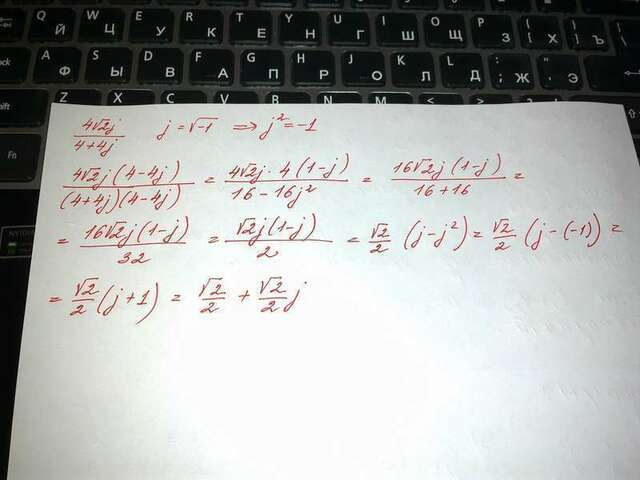 Q W E R T Y U I O P { }
Й Ц У К Е Н Г Ш Щ З [ Х ] Ъ
A S D F G H J K L : "
Ф Ы В А П Р О Л Д ; Ж , Э
Shift Z X
Fn
4√2j / 4+4j j = √-1 ⇒ j² = -1
4√2j(4-4j) / (4+4j)(4-4j) = 4√2j · 4(1-j) / 16-16j² = 16√2j(1-j) / 16+16 =
= 16√2j(1-j) / 32 = √2j(1-j) / 2 = √2/2 (j-j²) = √2/2 (j-(-1)) =
= √2/2 (j+1) = √2/2 + √2/2 j